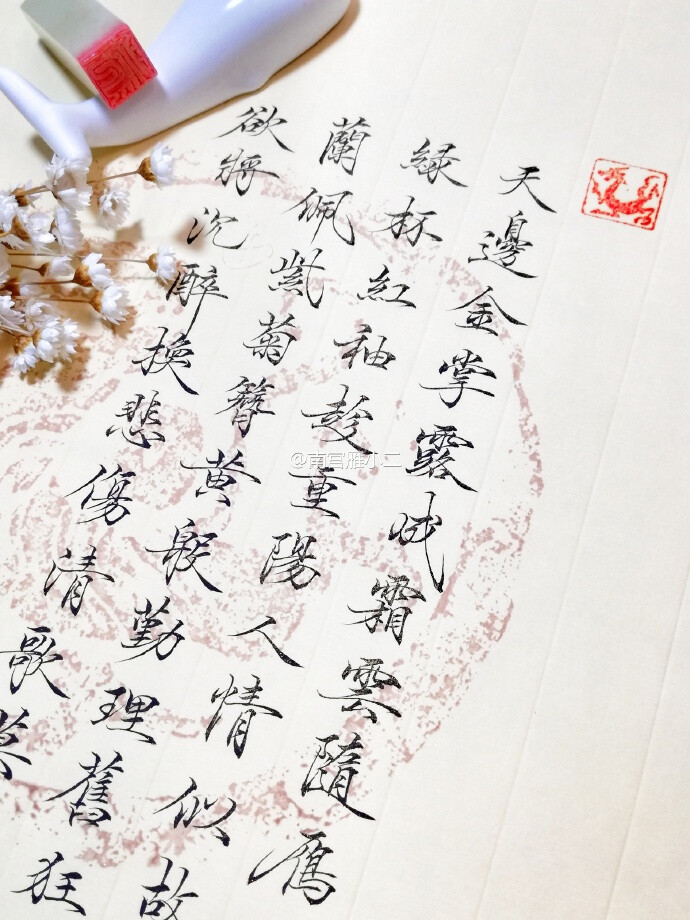 天邊金掌露成霜雲隨鴈
緑杯紅袖趁重陽人情似故
蘭佩紫菊簪黄殷勤理舊狂
欲將沉醉換悲傷清歌莫
@南宫雁小二